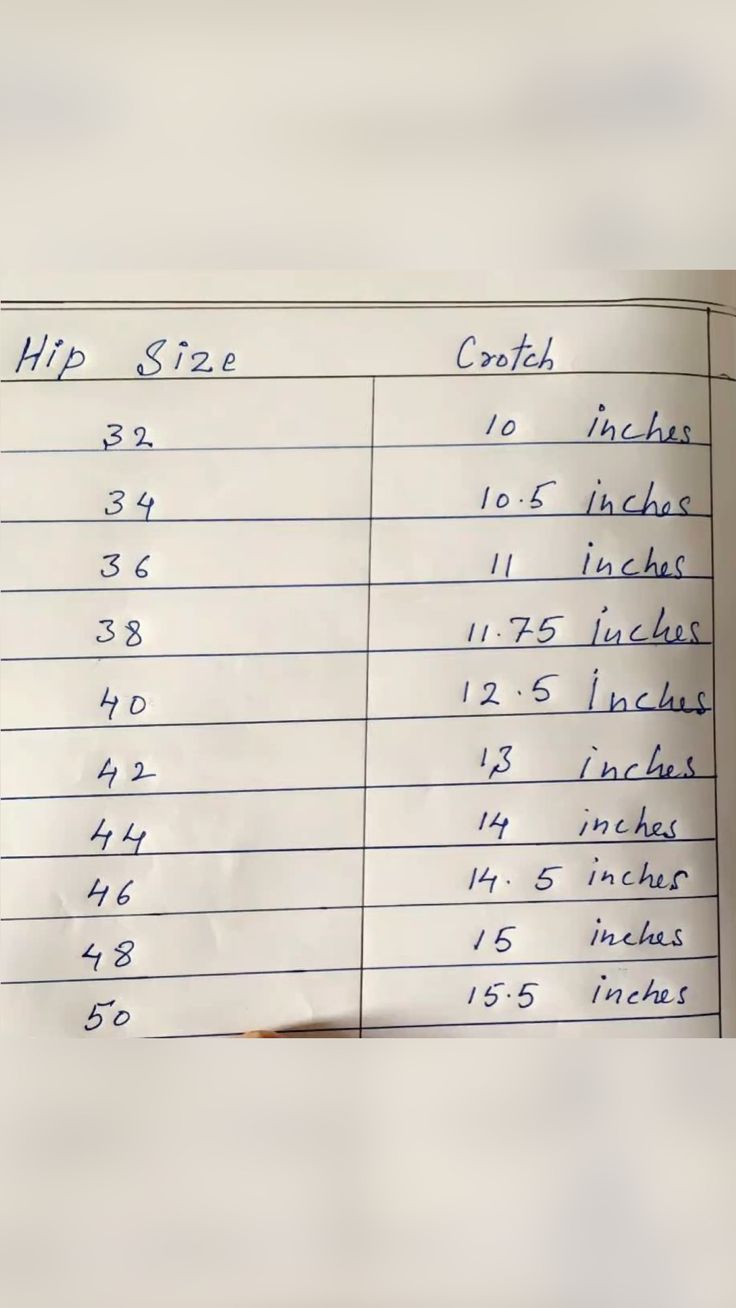 Hip Size Crotch
32 10 inches
34 10.5 inches
36 11 inches
38 11.75 inches
40 12.5 inches
42 13 inches
44 14 inches
46 14.5 inches
48 15 inches
50 15.5 inches